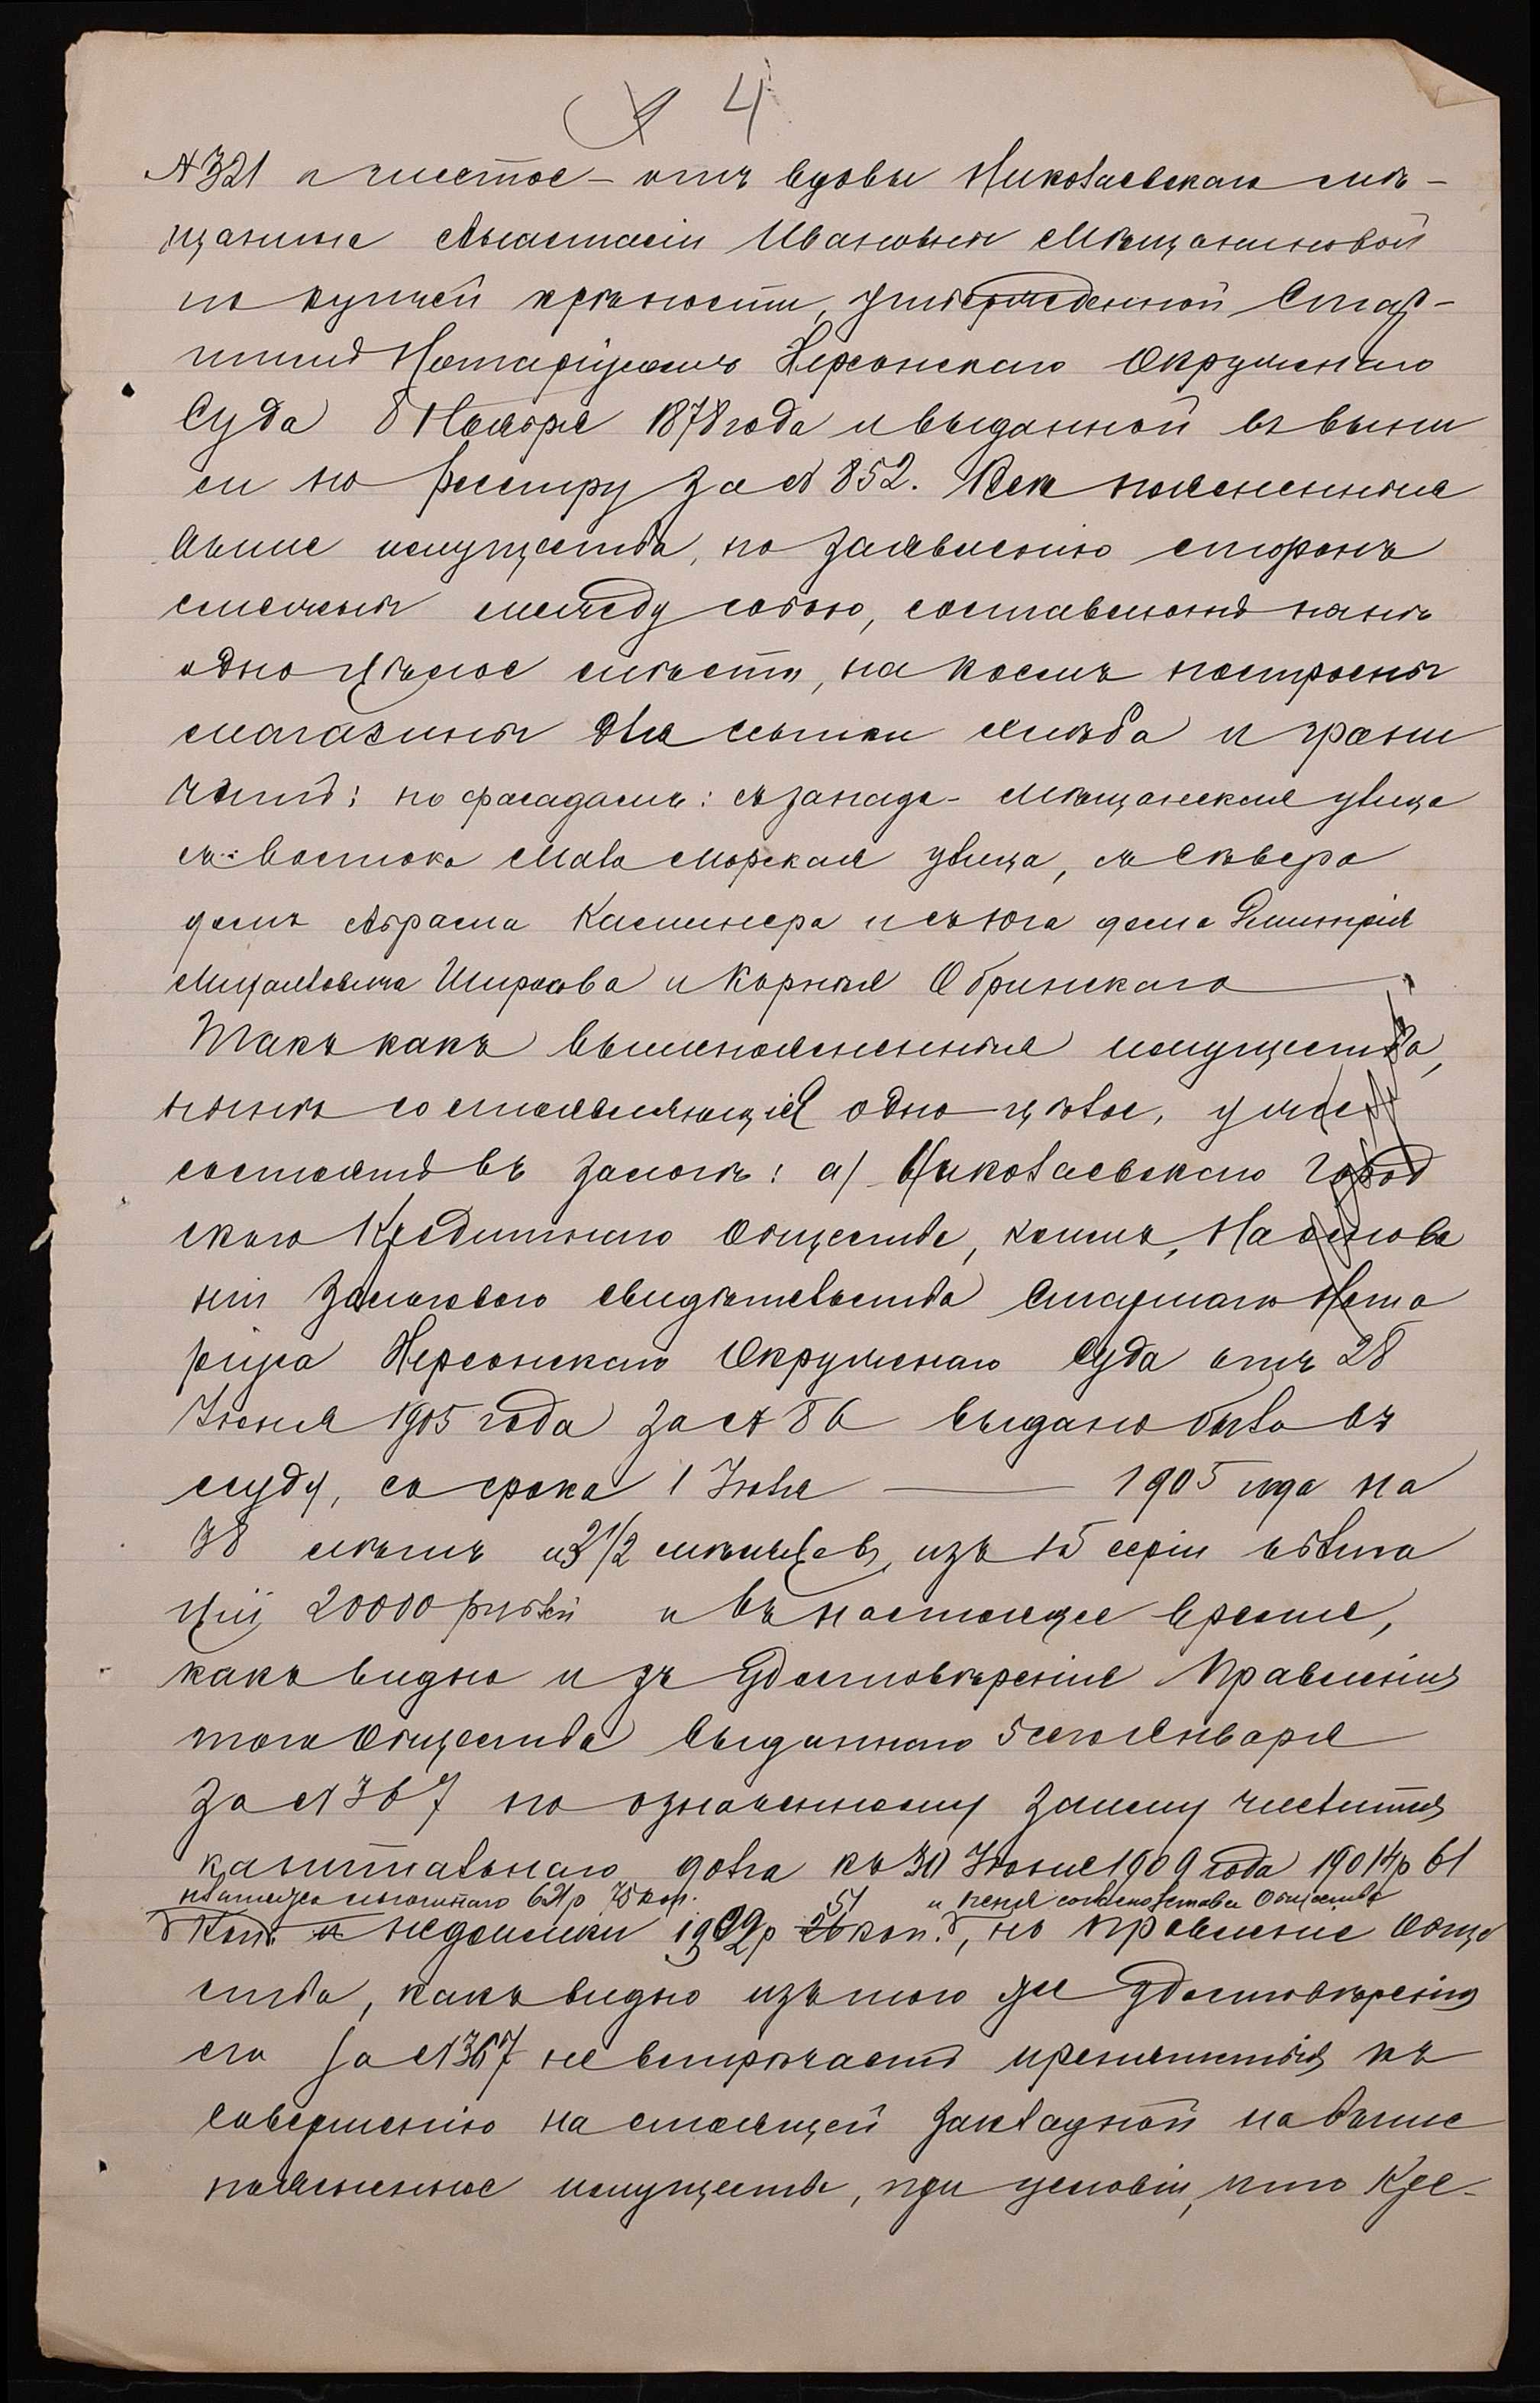 4
№ 321 и шестое – отъ вдовы Николаевскаго мѣ–
щанина Анастасіи Ивановны Мѣщаниновой
по купчей крѣпости, утвержденной Стар–
шимъ Нотаріусомъ Херсонскаго Окружнаго
Суда 8 Ноября 1878 года и выданной въ выпи
си по реестру за № 852. Всѣ поясненныя
выше имущества, по заявленію сторонъ
смежныя между собою, составляютъ нынѣ
одно цѣлое мѣсто, на коемъ построены
магазины для ссыпки хлѣба и грани
читъ: по фасадамъ: съ запада – Мѣщанская улица
съ востока Мало Морская улица, съ Сѣвера
домъ Абрама Кастинера и съ юга дома Дмитрія
Михайловича Широкова и Корнія Обринскаго
Такъ какъ вышепоясненныя имущества,
нынѣ составляющія одно цѣлое, уже
состоятъ въ залогѣ: а) Николаевскаго Город
скаго Кредитнаго Общества, коимъ, на основа
ніи залоговаго свидѣтельства Старшаго Нота
ріуса Херсонскаго Окружнаго Суда отъ 28
Іюня 1905 года за № 86 выдано было въ
ссуду, со срока 1 Іюля 1905 года на
38 лѣтъ и 3 1/2 мѣсяцевъ, изъ 15 серіи облига
цій 20000 рублей и въ настоящее время,
какъ видно изъ удостовѣренія Правленія
того Общества выданнаго 5 сего Января
за № 367 по означенному займу числится
капитальнаго долга къ 30 Іюня 1909 года 19014 р 61
платежа льготнаго 621 р 75 коп. 51 и пеня согласно устава Общества
коп. и недоимки 1922 р 26 коп., но Правленіе Обще
ства, какъ видно изъ того же удостовѣренія
его за № 367 не встрѣчаетъ препятствія къ
совершенію настоящей закладной на выше
поясненное имущество, при условіи, что Кре–